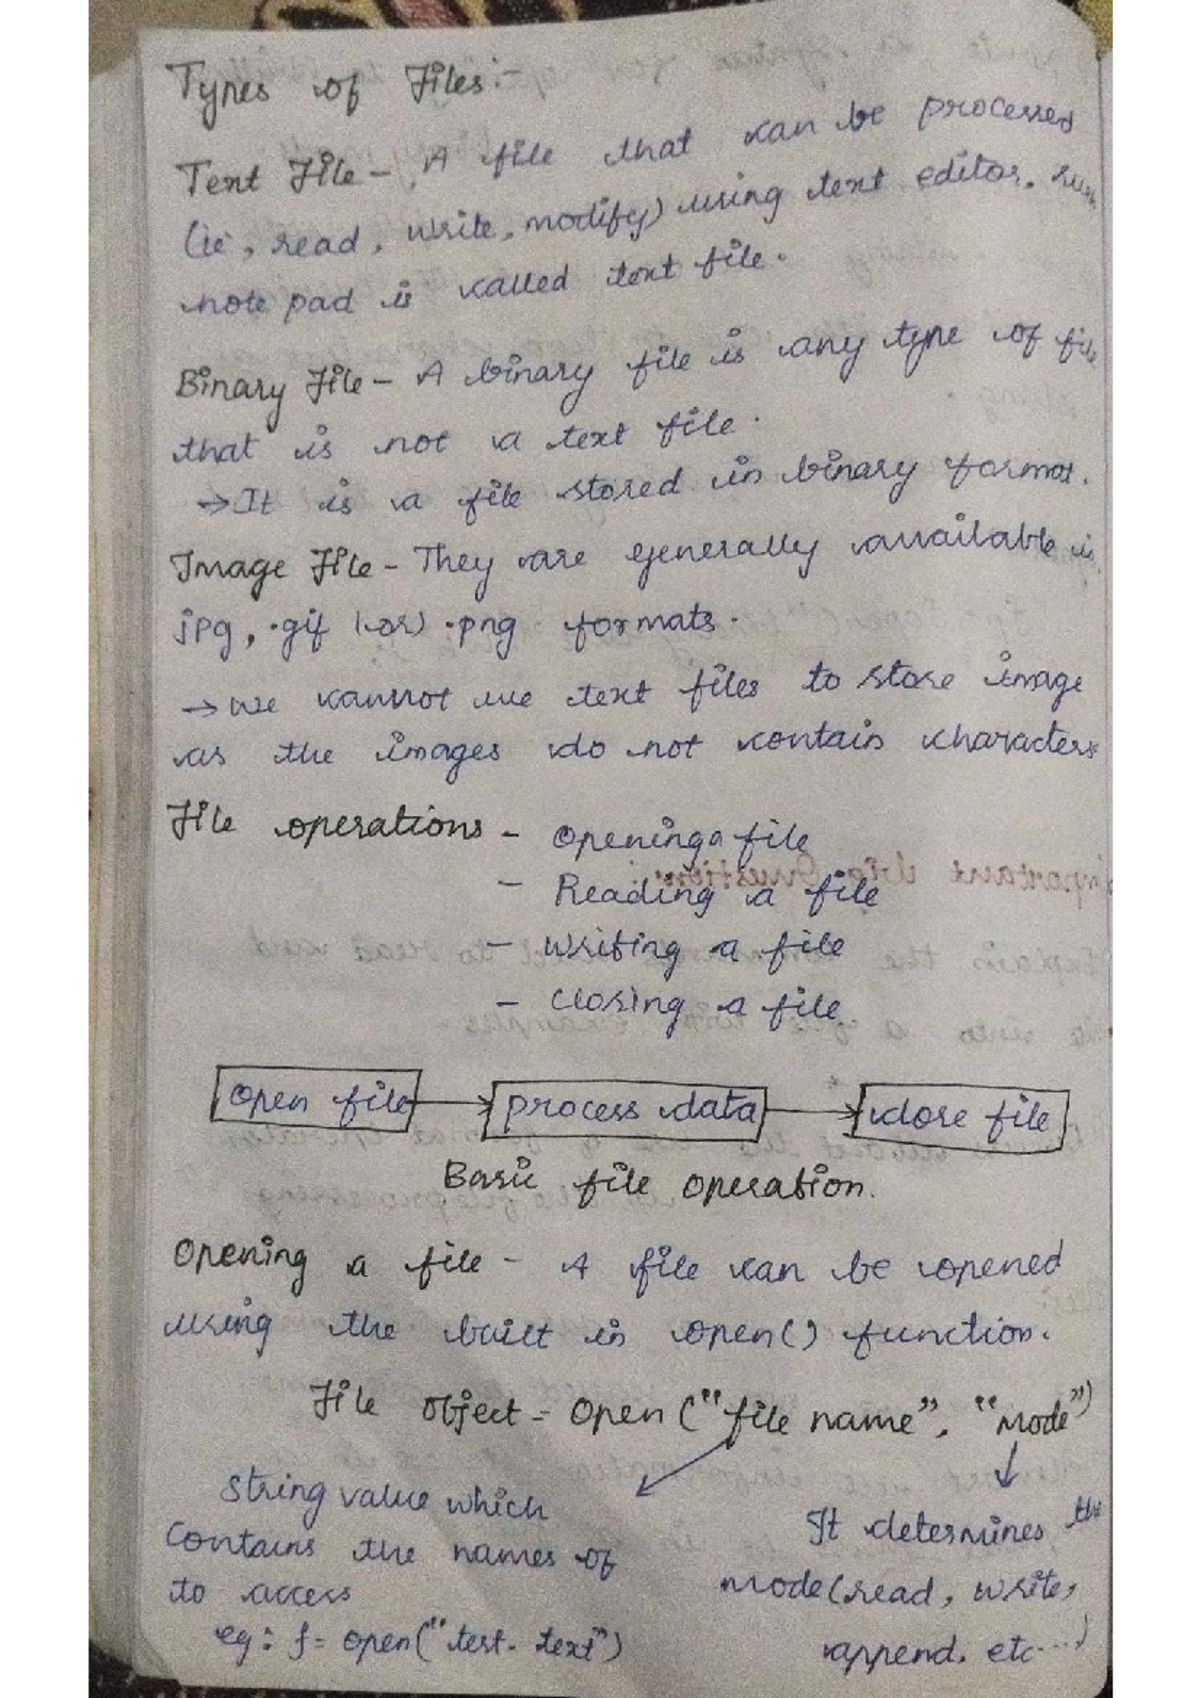 Types of Files:-
Text File - A file that can be processed
(ie, read, write, modify) using text editor.
note pad is called text file.
Binary File - A binary file is any type of file
that is not a text file.
→ It is a file stored in binary format.
Image File - They are generally available in
jpg, .gif (or) .png formats.
→ we cannot use text files to store image
as the images do not contain characters
File operations - Opening a file
- Reading a file
- Writing a file
- Closing a file
Open file → process data → close file
Basic file operation.
Opening a file - A file can be opened
using the built in open() function.
File object = Open ("file name", "Mode")
String value which
Contains the names of
to access
eg: f= open("test. text")
It determines the
mode(read, write,
append. etc....)